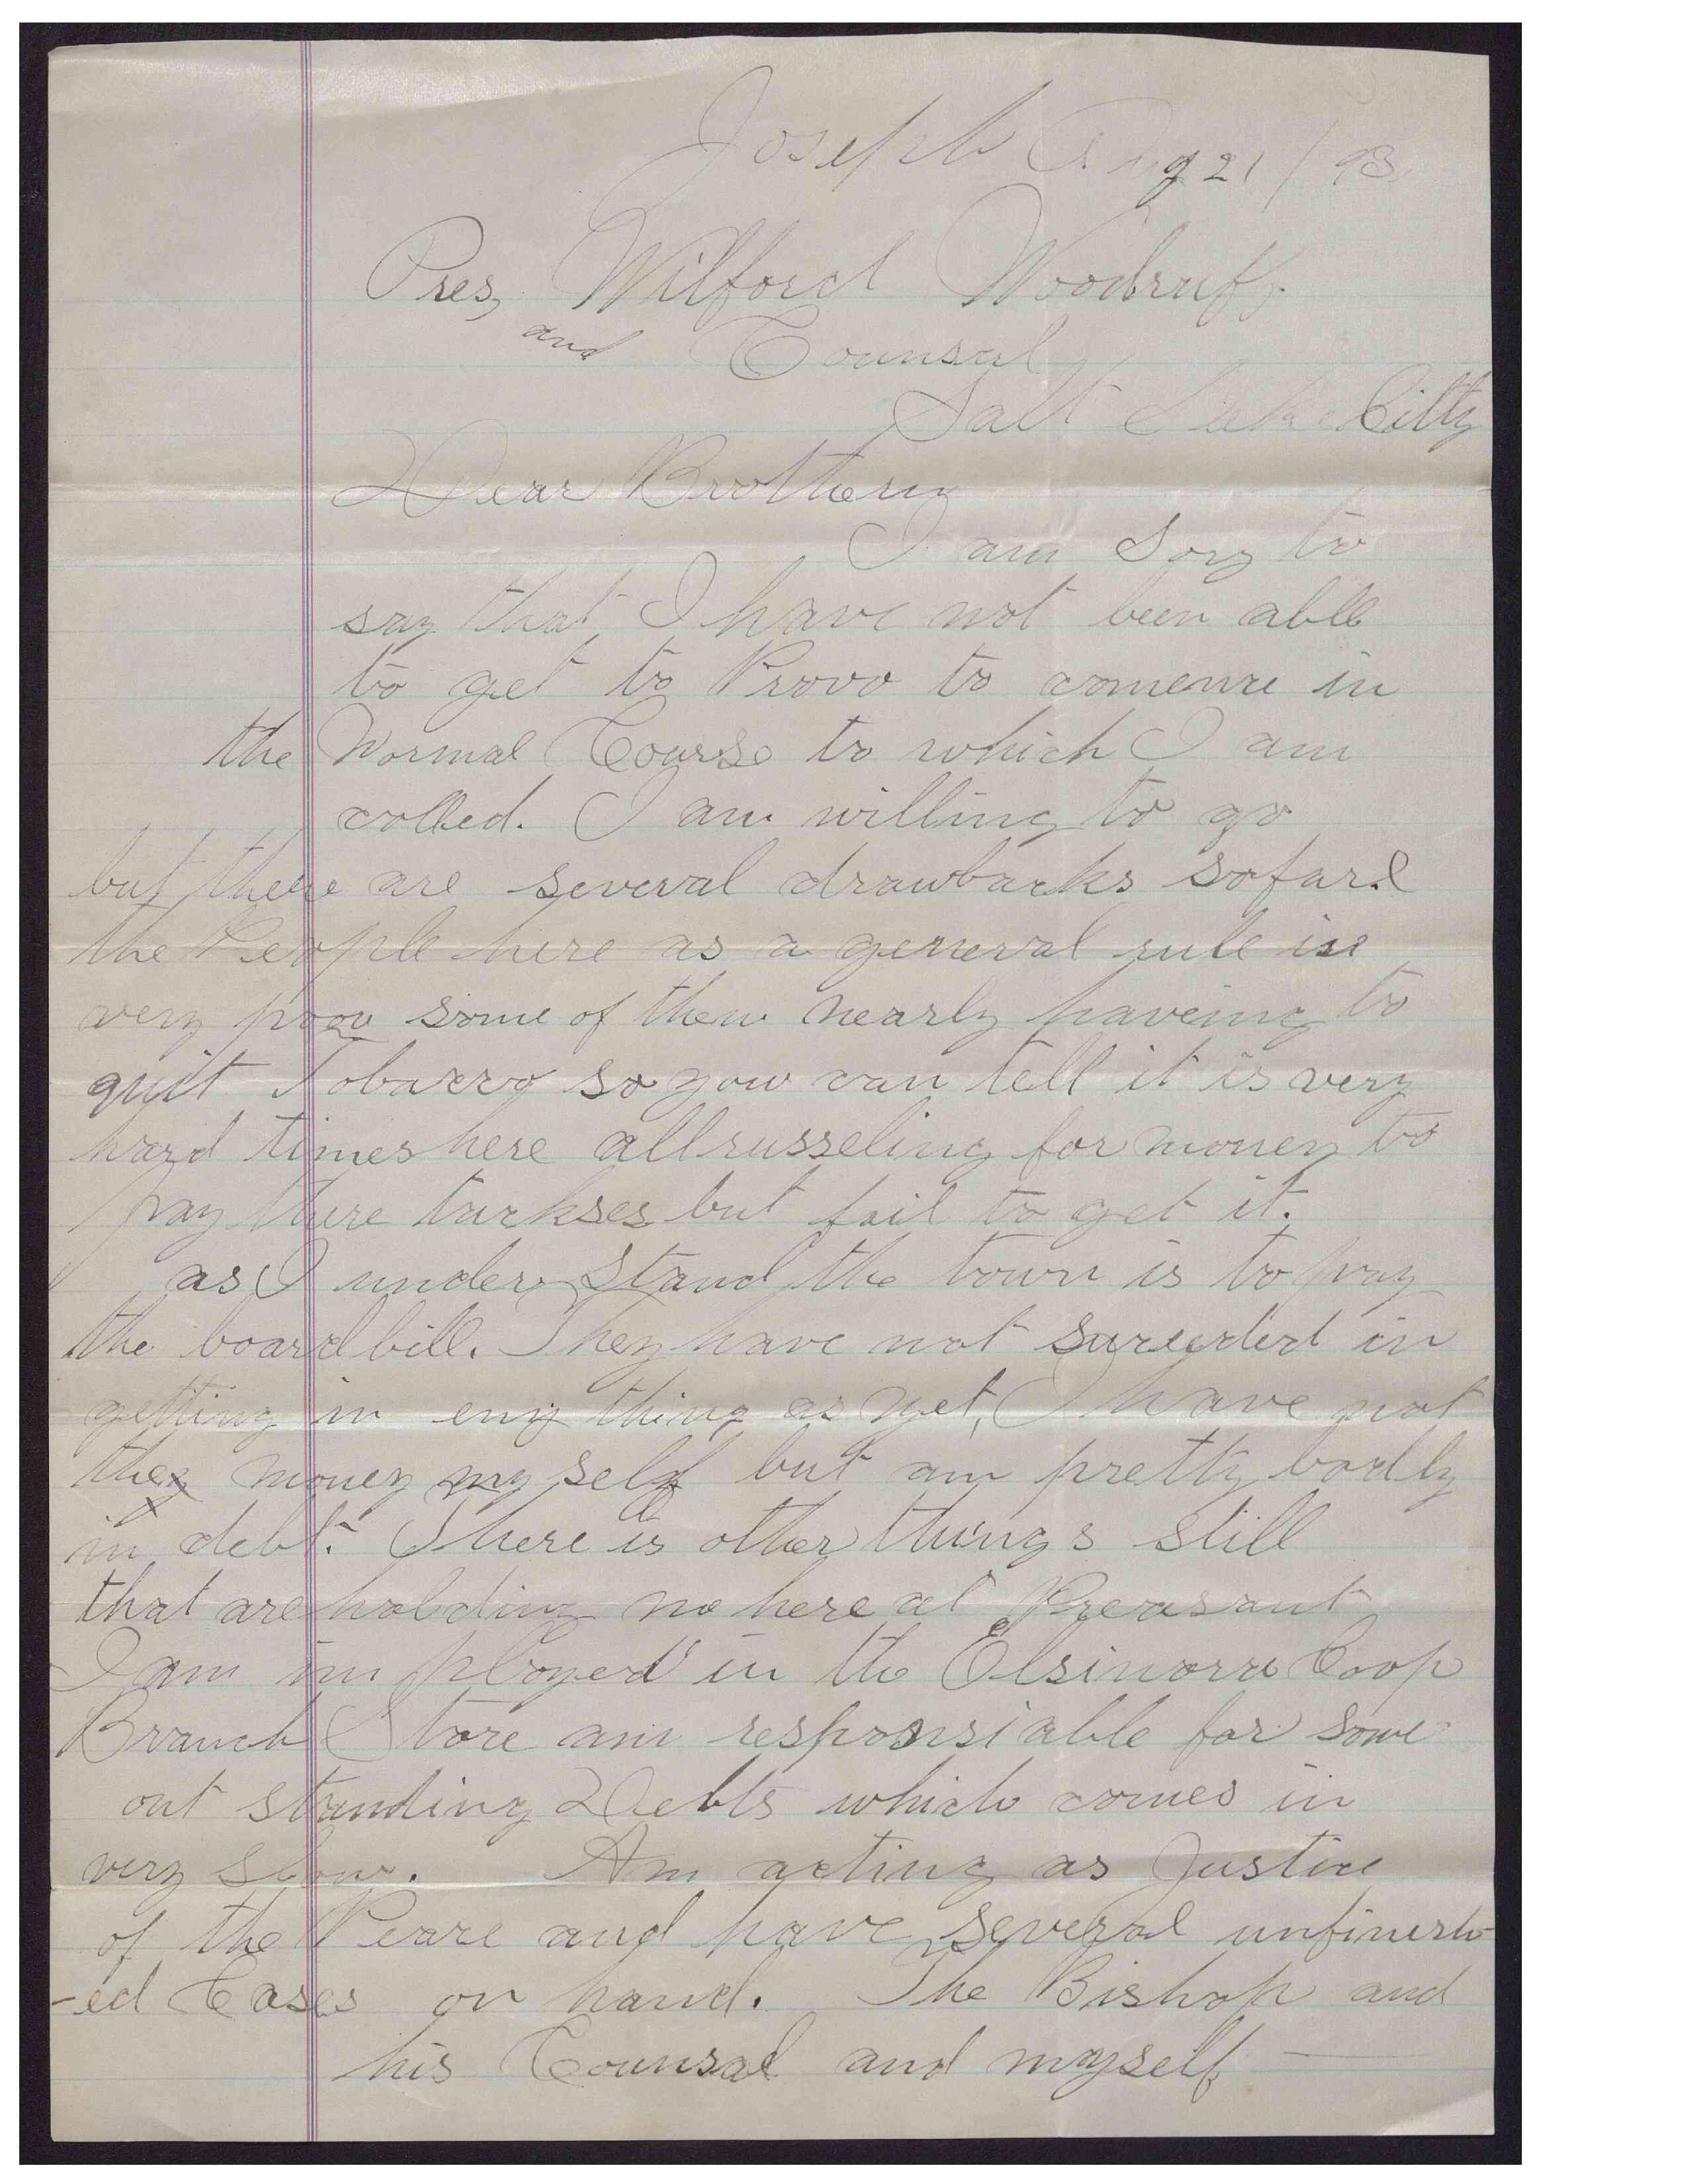 Joseph Aug 21/93.
Pres, Wilford Woodruff.
and Counsal
Salt Lake Citty
Dear Brothern
I am Sory to
say that I have not been able
to get to Provo to comence in
the Normal Course to which I am
colled. I am willing to go
but there are several drawbacks sofar.
the People here as a general rule is
very poor some of them nearly haveing to
quit Tobacco so you can tell it is very
hard times here all russeling for money to
pay there tackses but fail to get it.
as I under Stand the town is to pay
the board bill. They have not suceeded in
getting in eny thing as yet, I have not
the money my self but am pretty badly
in debt. There is other things still
that are holding me here at Preasant
I am im ployed in the Elsinore Coop
Branch Store am responsiable for some
out standing Debts which comes in
very slow. Am acting as Justice
of the Peace and have several unfinesh
-ed Cases on hand. The Bishop and
his Counsal and myself